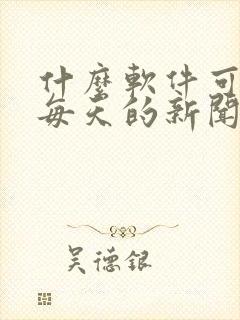 什麼軟件可
每天的新聞
吴德銀